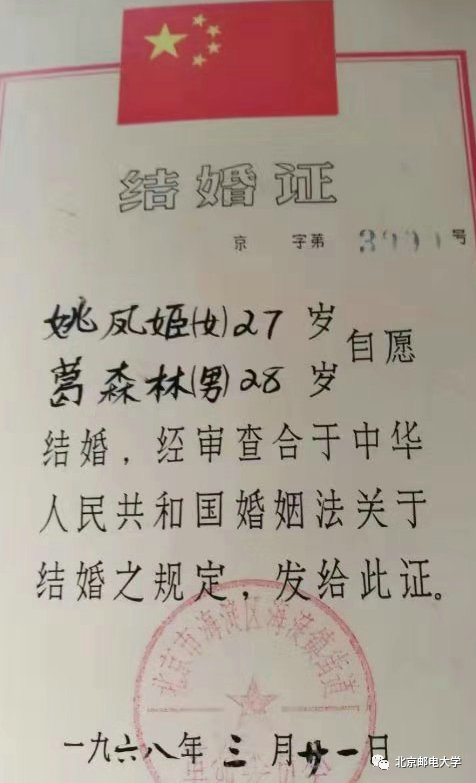 结婚证
京 字第 号
姚凤姬(女)27 岁
葛森林(男)28 岁
自愿
结婚，经审查合于中华
人民共和国婚姻法关于
结婚之规定，发给此证。
北京市海淀区海淀镇街道
一九六八年 三 月 廿一日
北京邮电大学